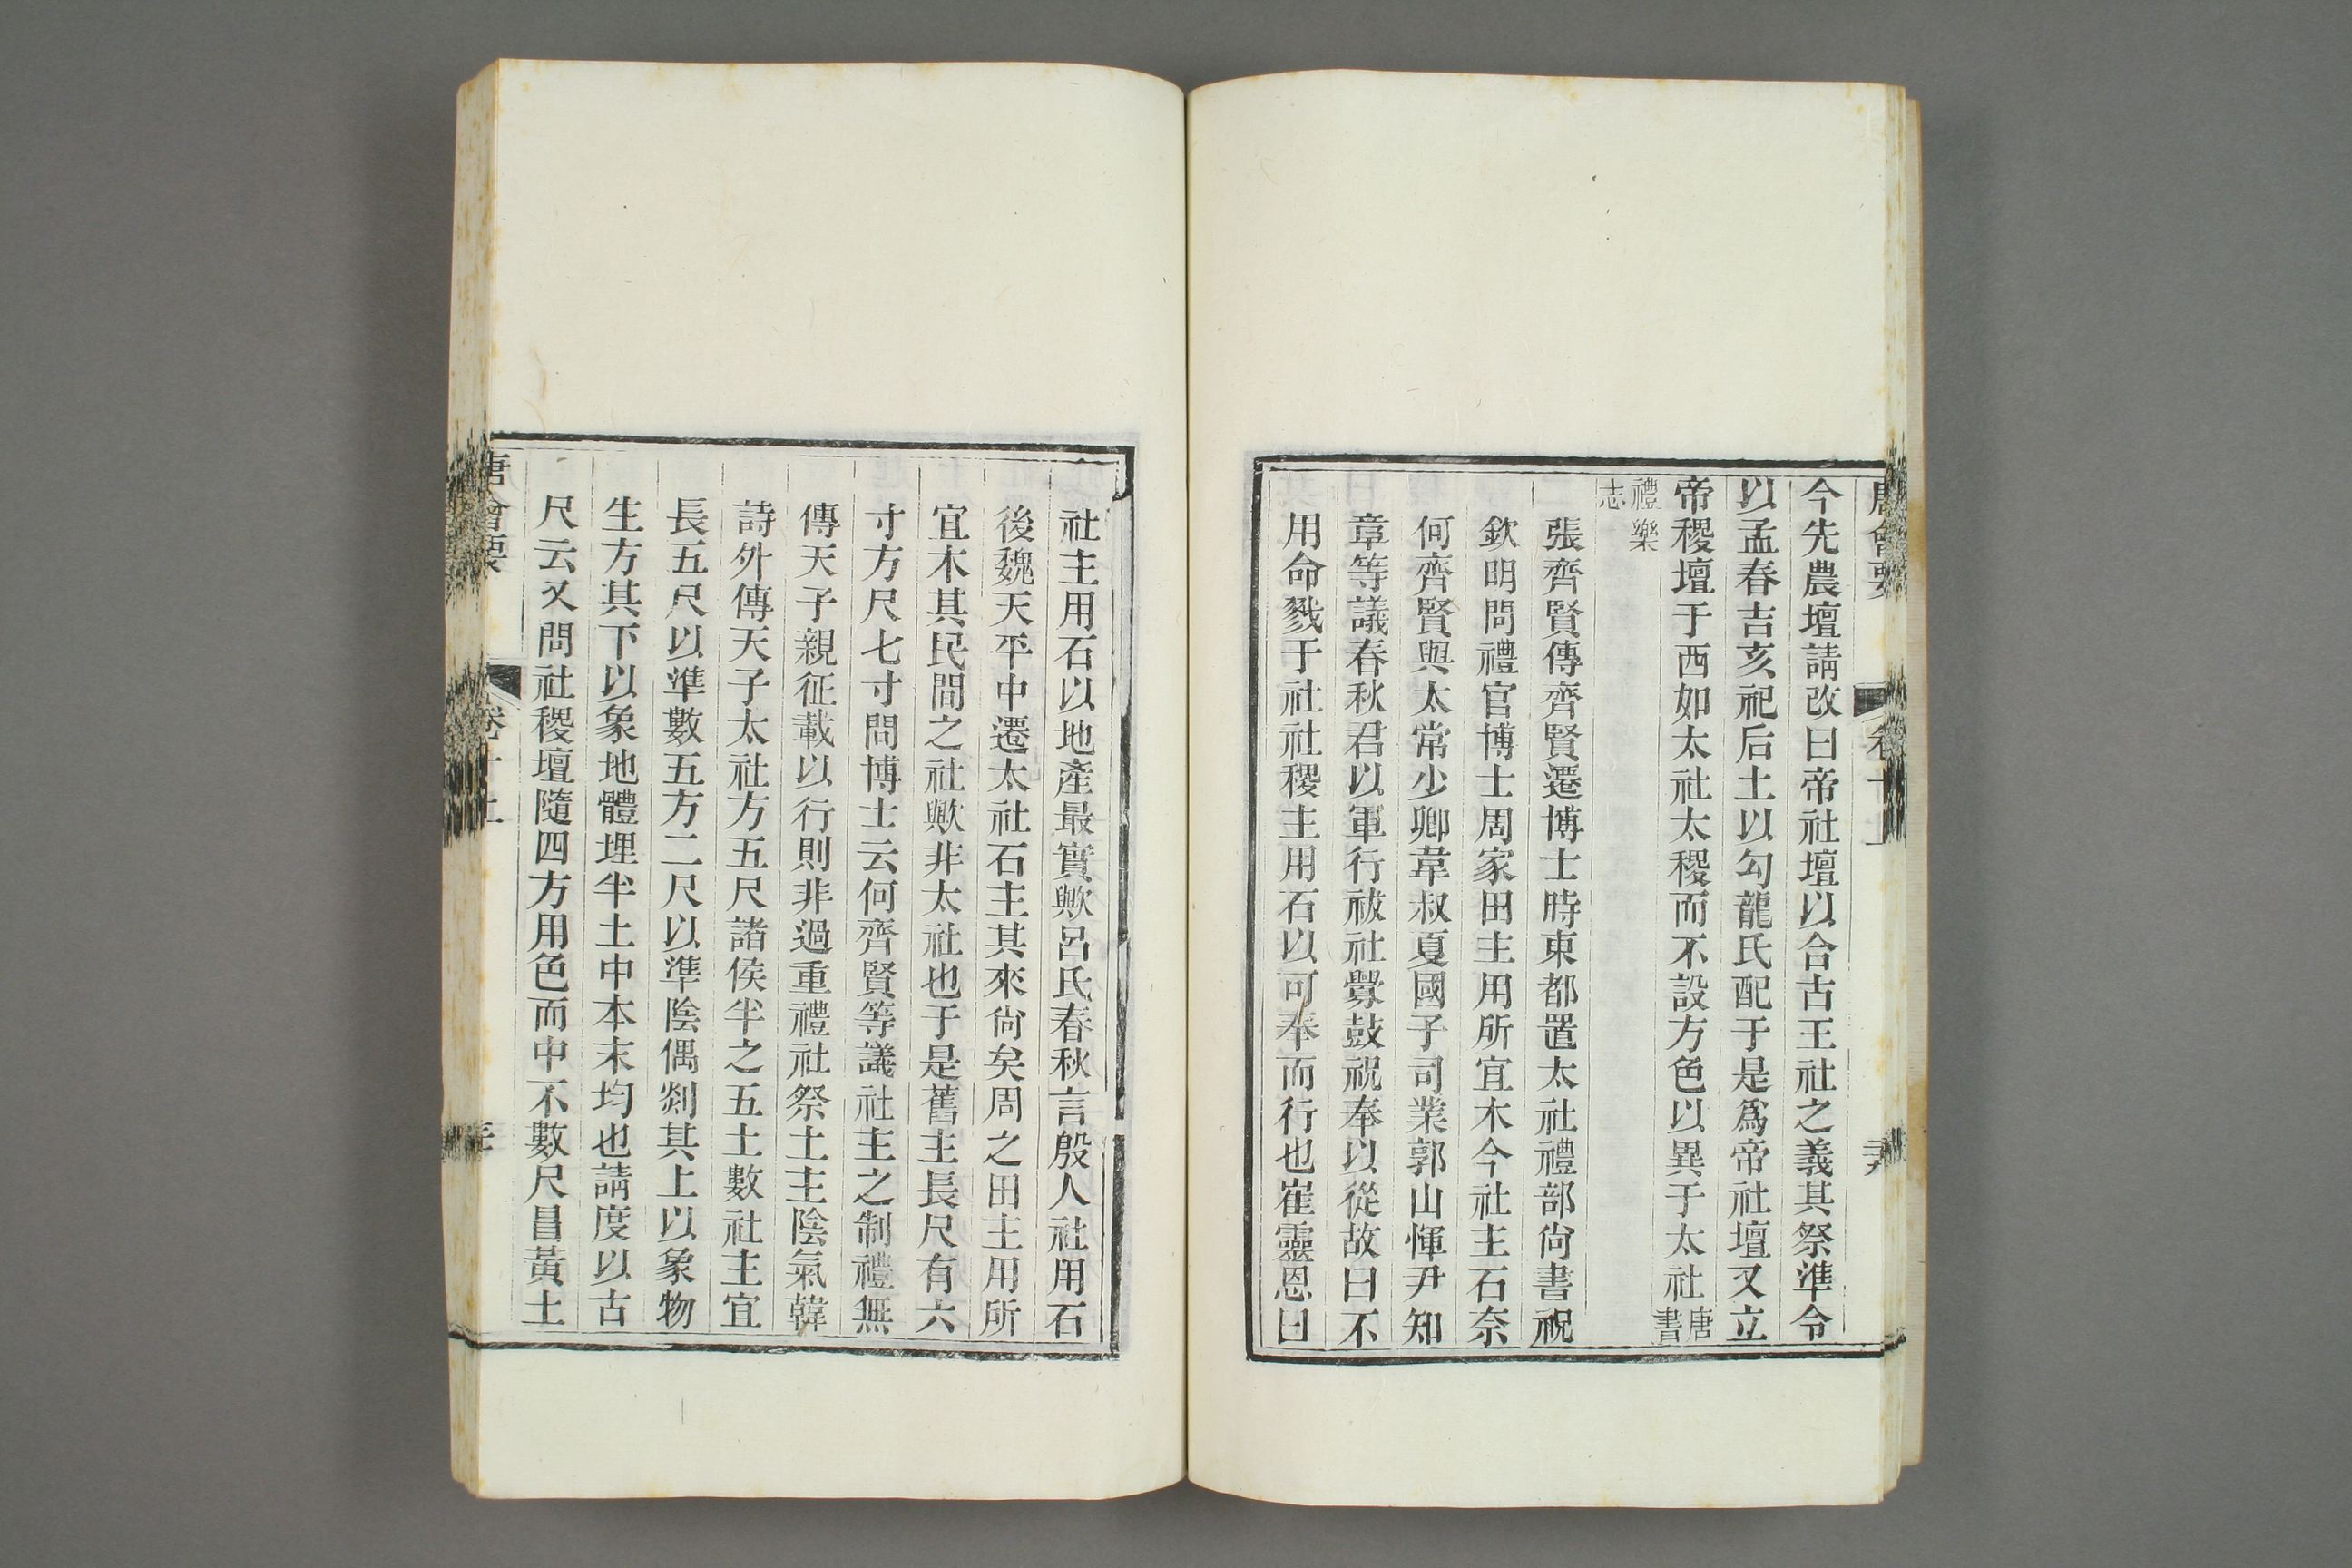 唐會要
卷十上
今先農壇請改曰帝社壇以合古王社之義其祭準令
以孟春吉亥祀后土以勾龍氏配于是爲帝社壇又立
帝稷壇于西如太社太稷而不設方色以異于太社唐書
禮樂志
張齊賢傳齊賢遷博士時東都置太社禮部尙書祝
欽明問禮官博士周家田主用所宜木今社主石奈
何齊賢與太常少卿韋叔夏國子司業郭山惲尹知
章等議春秋君以軍行祓社釁鼓祝奉以從故曰不
用命戮于社社稷主用石以可奉而行也崔靈恩曰
社主用石以地產最實歟呂氏春秋言殷人社用石
後魏天平中遷太社石主其來尙矣周之田主用所
宜木其民間之社歟非太社也于是舊主長尺有六
寸方尺七寸問博士云何齊賢等議社主之制禮無
傳天子親征載以行則非過重禮社祭土主陰氣韓
詩外傳天子太社方五尺諸侯半之五土數社主宜
長五尺以準數五方二尺以準陰偶剡其上以象物
生方其下以象地體埋半土中本末均也請度以古
尺云又問社稷壇隨四方用色而中不數尺冒黃土
唐會要
卷十上